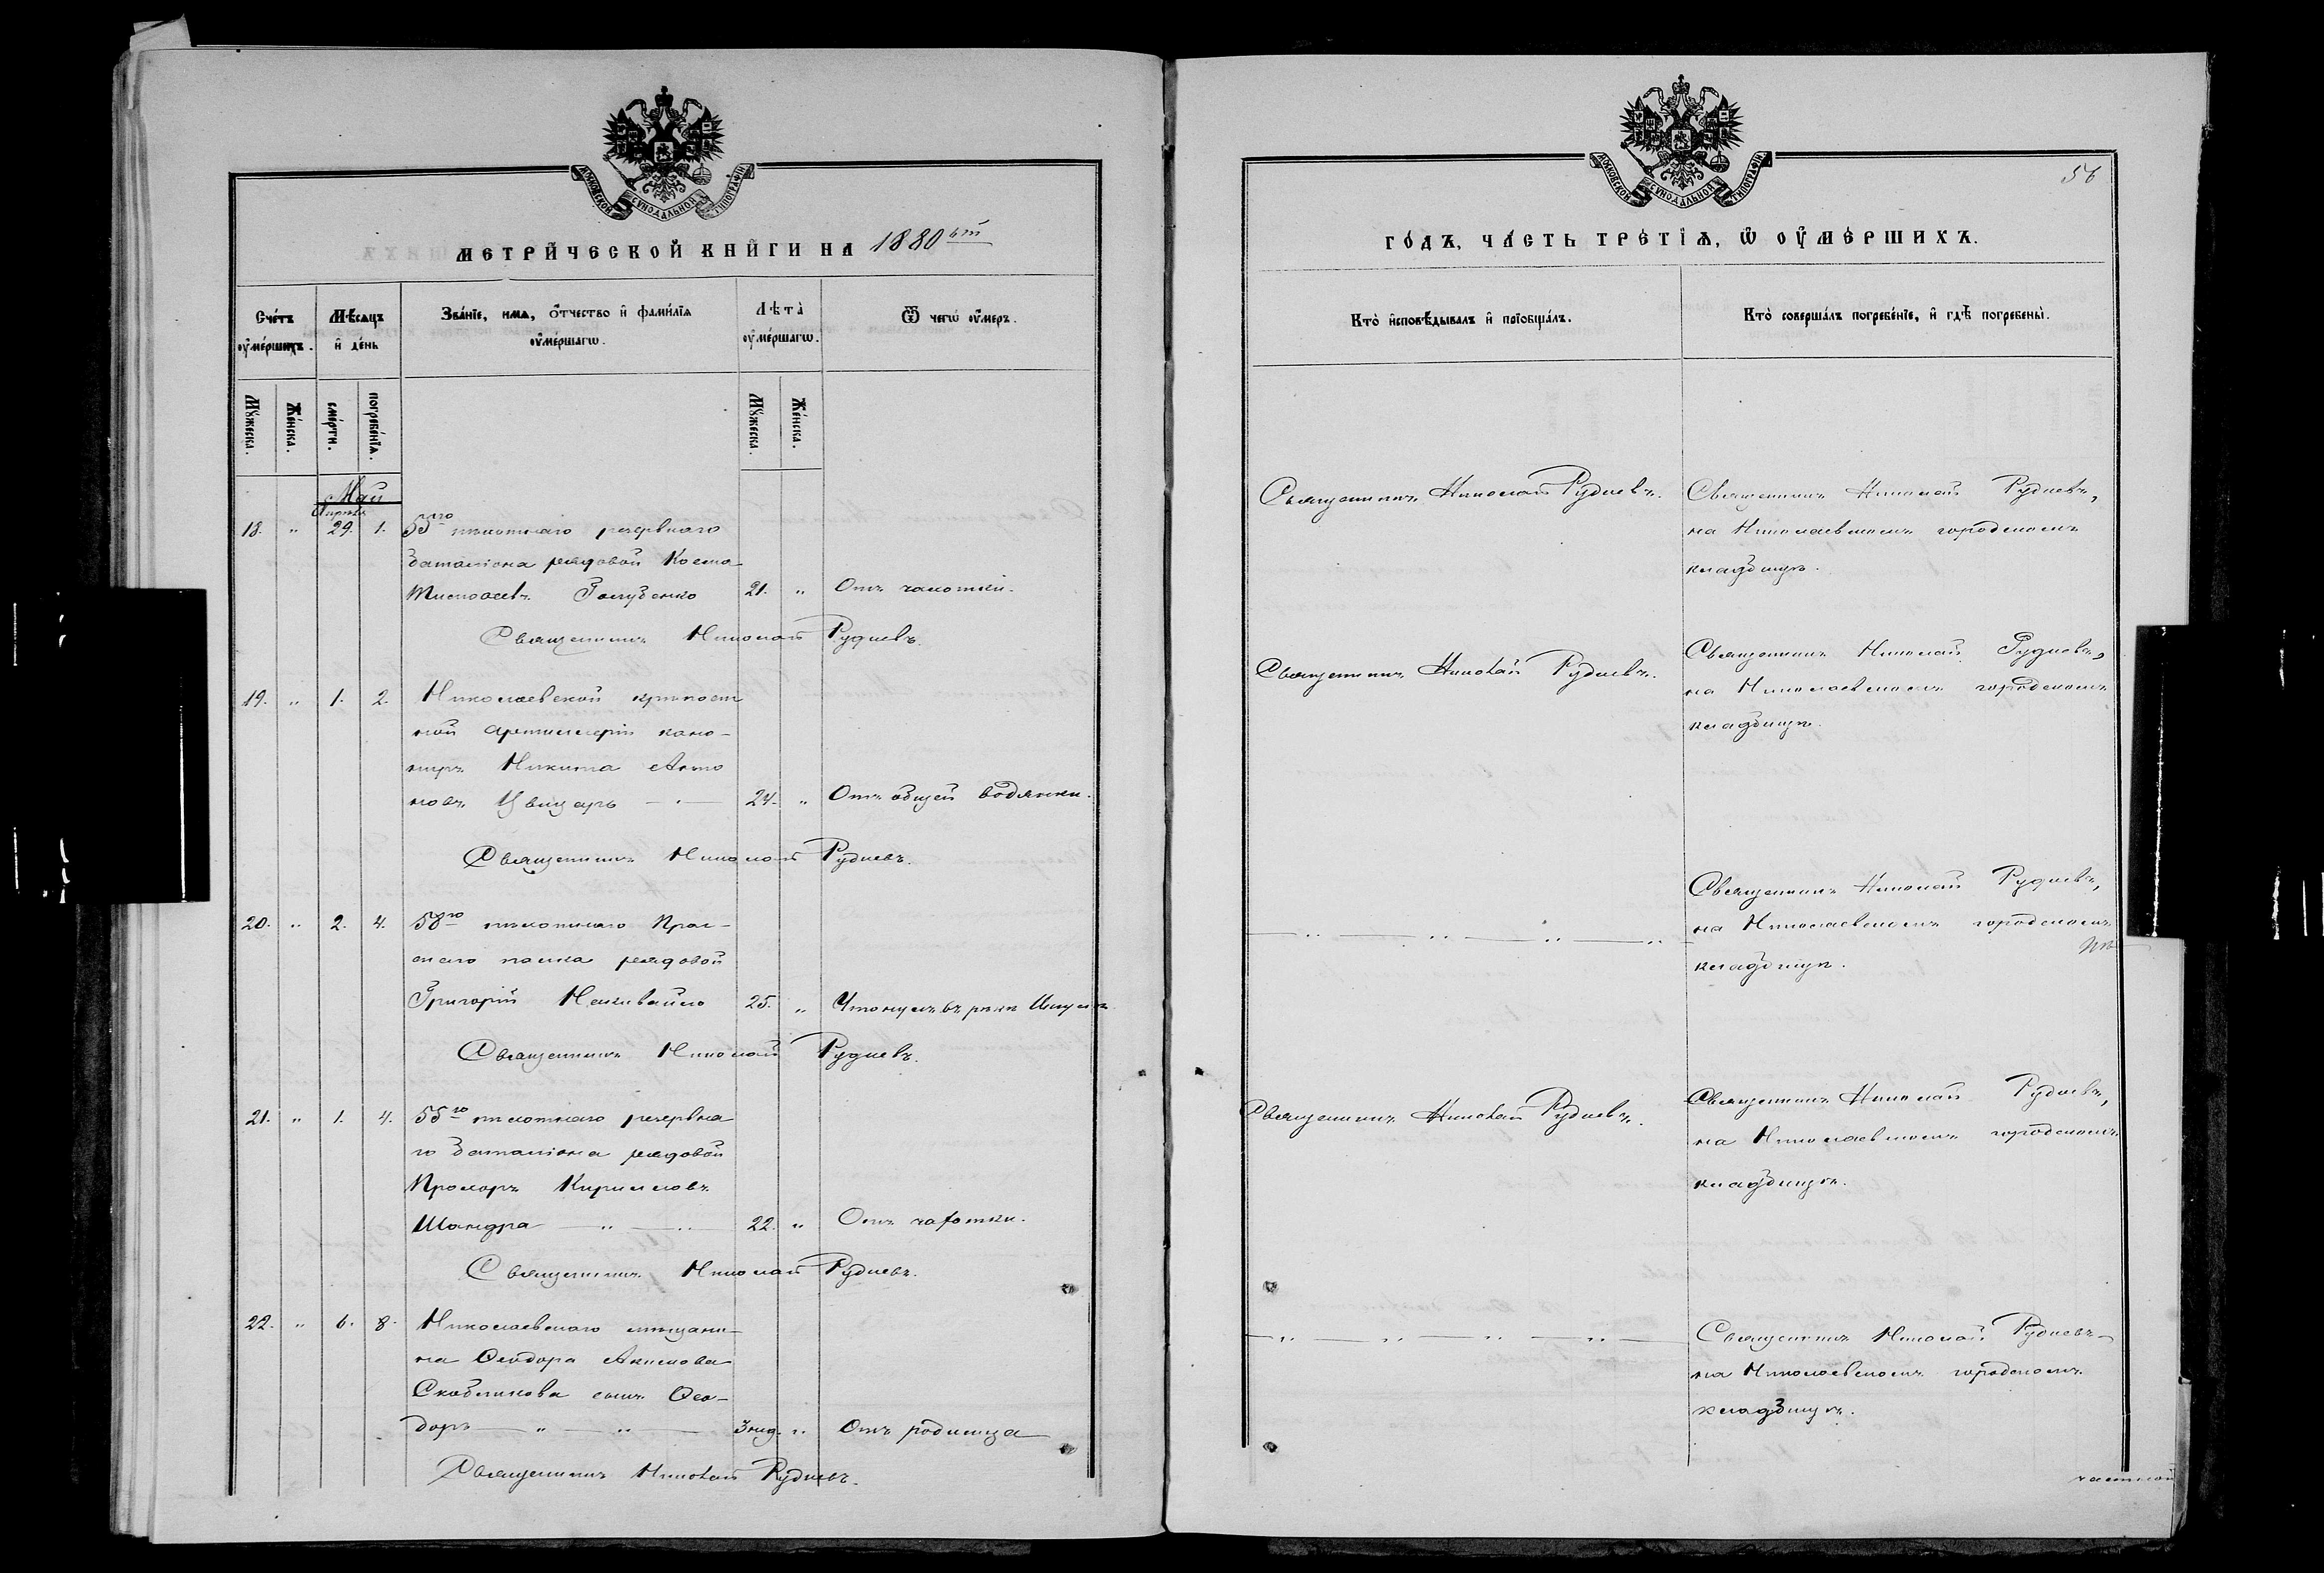 МОСКОВСКОЙ СѴНОДАЛЬНОЙ ТИПОГРАФІИ
МЕТРИ́ЧЕСКОЙ КНИ́ГИ НА 1880ый
Сче́тъ ᲂу҆ме́ршихъ.
Мѣ́сяцъ и҆ де́нь
Зва́нїе, имѧ, ѻ҆́тчество и҆ фами́лїѧ ᲂу҆ме́ршагѡ.
Лѣта̀ ᲂу҆ме́ршагѡ.
Ѿ чегѡ̀ ᲂу҆́меръ.
Мꙋ́жеска.
Же́нска.
сме́рти.
погребе́нїѧ.
Мꙋ́жеска.
Же́нска.
Май
Апрѣля
18. " 29. 1. 55го пѣхотнаго резервнаго
баталіона рядовой Косма
Голубенко 21. " Отъ чахотки.
Священникъ Николай Рудневъ.
19. " 1. 2. Николаевской крѣпост
ной артиллеріи кано-
ниръ Никита Анто
новъ Цвицарь — " — 24. " Отъ общей водянки.
Священникъ Николай Рудневъ.
20. " 2. 4. 58го пѣхотнаго Праг-
скаго полка рядовой
Григорій Наливайко 25. " Утонулъ въ рѣкѣ Ингулѣ
Священникъ Николай Рудневъ.
21. " 1. 4. 55го пѣхотнаго резервна
го баталіона рядовой
Прохоръ Кирилловъ
Шандра — " — " 22. " Отъ чахотки.
Священникъ Николай Рудневъ.
22. " 6. 8. Николаевскаго мѣщани-
на Ѳеодора Акимова
Скобликова сынъ Ѳео-
доръ — " — " — 3 нед. " Отъ родимца
Священникъ Николай Рудневъ.
МОСКОВСКОЙ СѴНОДАЛЬНОЙ ТИПОГРАФІИ
56
ГО́ДЪ, ЧА́СТЬ ТРЕ́ТЇѦ, Ѿ ОУ҆МЕ́РШИХЪ.
Кто̀ и҆сповѣ́дывалъ и҆ прїѡбща́лъ.
Кто̀ соверша́лъ погребе́нїе, и҆ гдѣ̀ погребены̀.
Священникъ Николай Рудневъ.
Священникъ Николай Рудневъ,
на Николаевскомъ городскомъ
кладбищѣ.
Священникъ Николай Рудневъ.
Священникъ Николай Рудневъ,
на Николаевскомъ городскомъ
кладбищѣ.
— " — " — " — "
Священникъ Николай Рудневъ,
на Николаевскомъ городскомъ
кладбищѣ.
Священникъ Николай Рудневъ.
Священникъ Николай Рудневъ,
на Николаевскомъ городскомъ
кладбищѣ.
— " — " — " — " —
Священникъ Николай Рудневъ
на Николаевскомъ городскомъ
кладбищѣ.